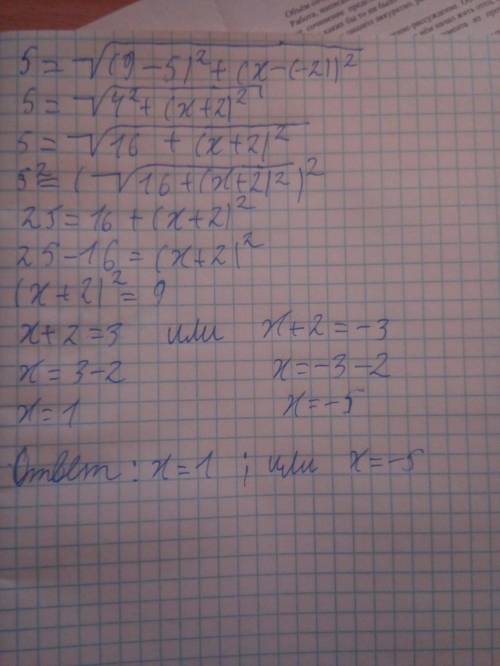 5 = √((9-5)² + (x-(-2))²
5 = √(4² + (x+2)²
5 = √(16 + (x+2)²
5² = (√(16+(x+2)²)²
25 = 16 + (x+2)²
25-16 = (x+2)²
(x+2)² = 9
x+2 = 3 или x+2 = -3
x = 3-2 x = -3-2
x = 1 x = -5
Ответ: x = 1 ; или x = -5